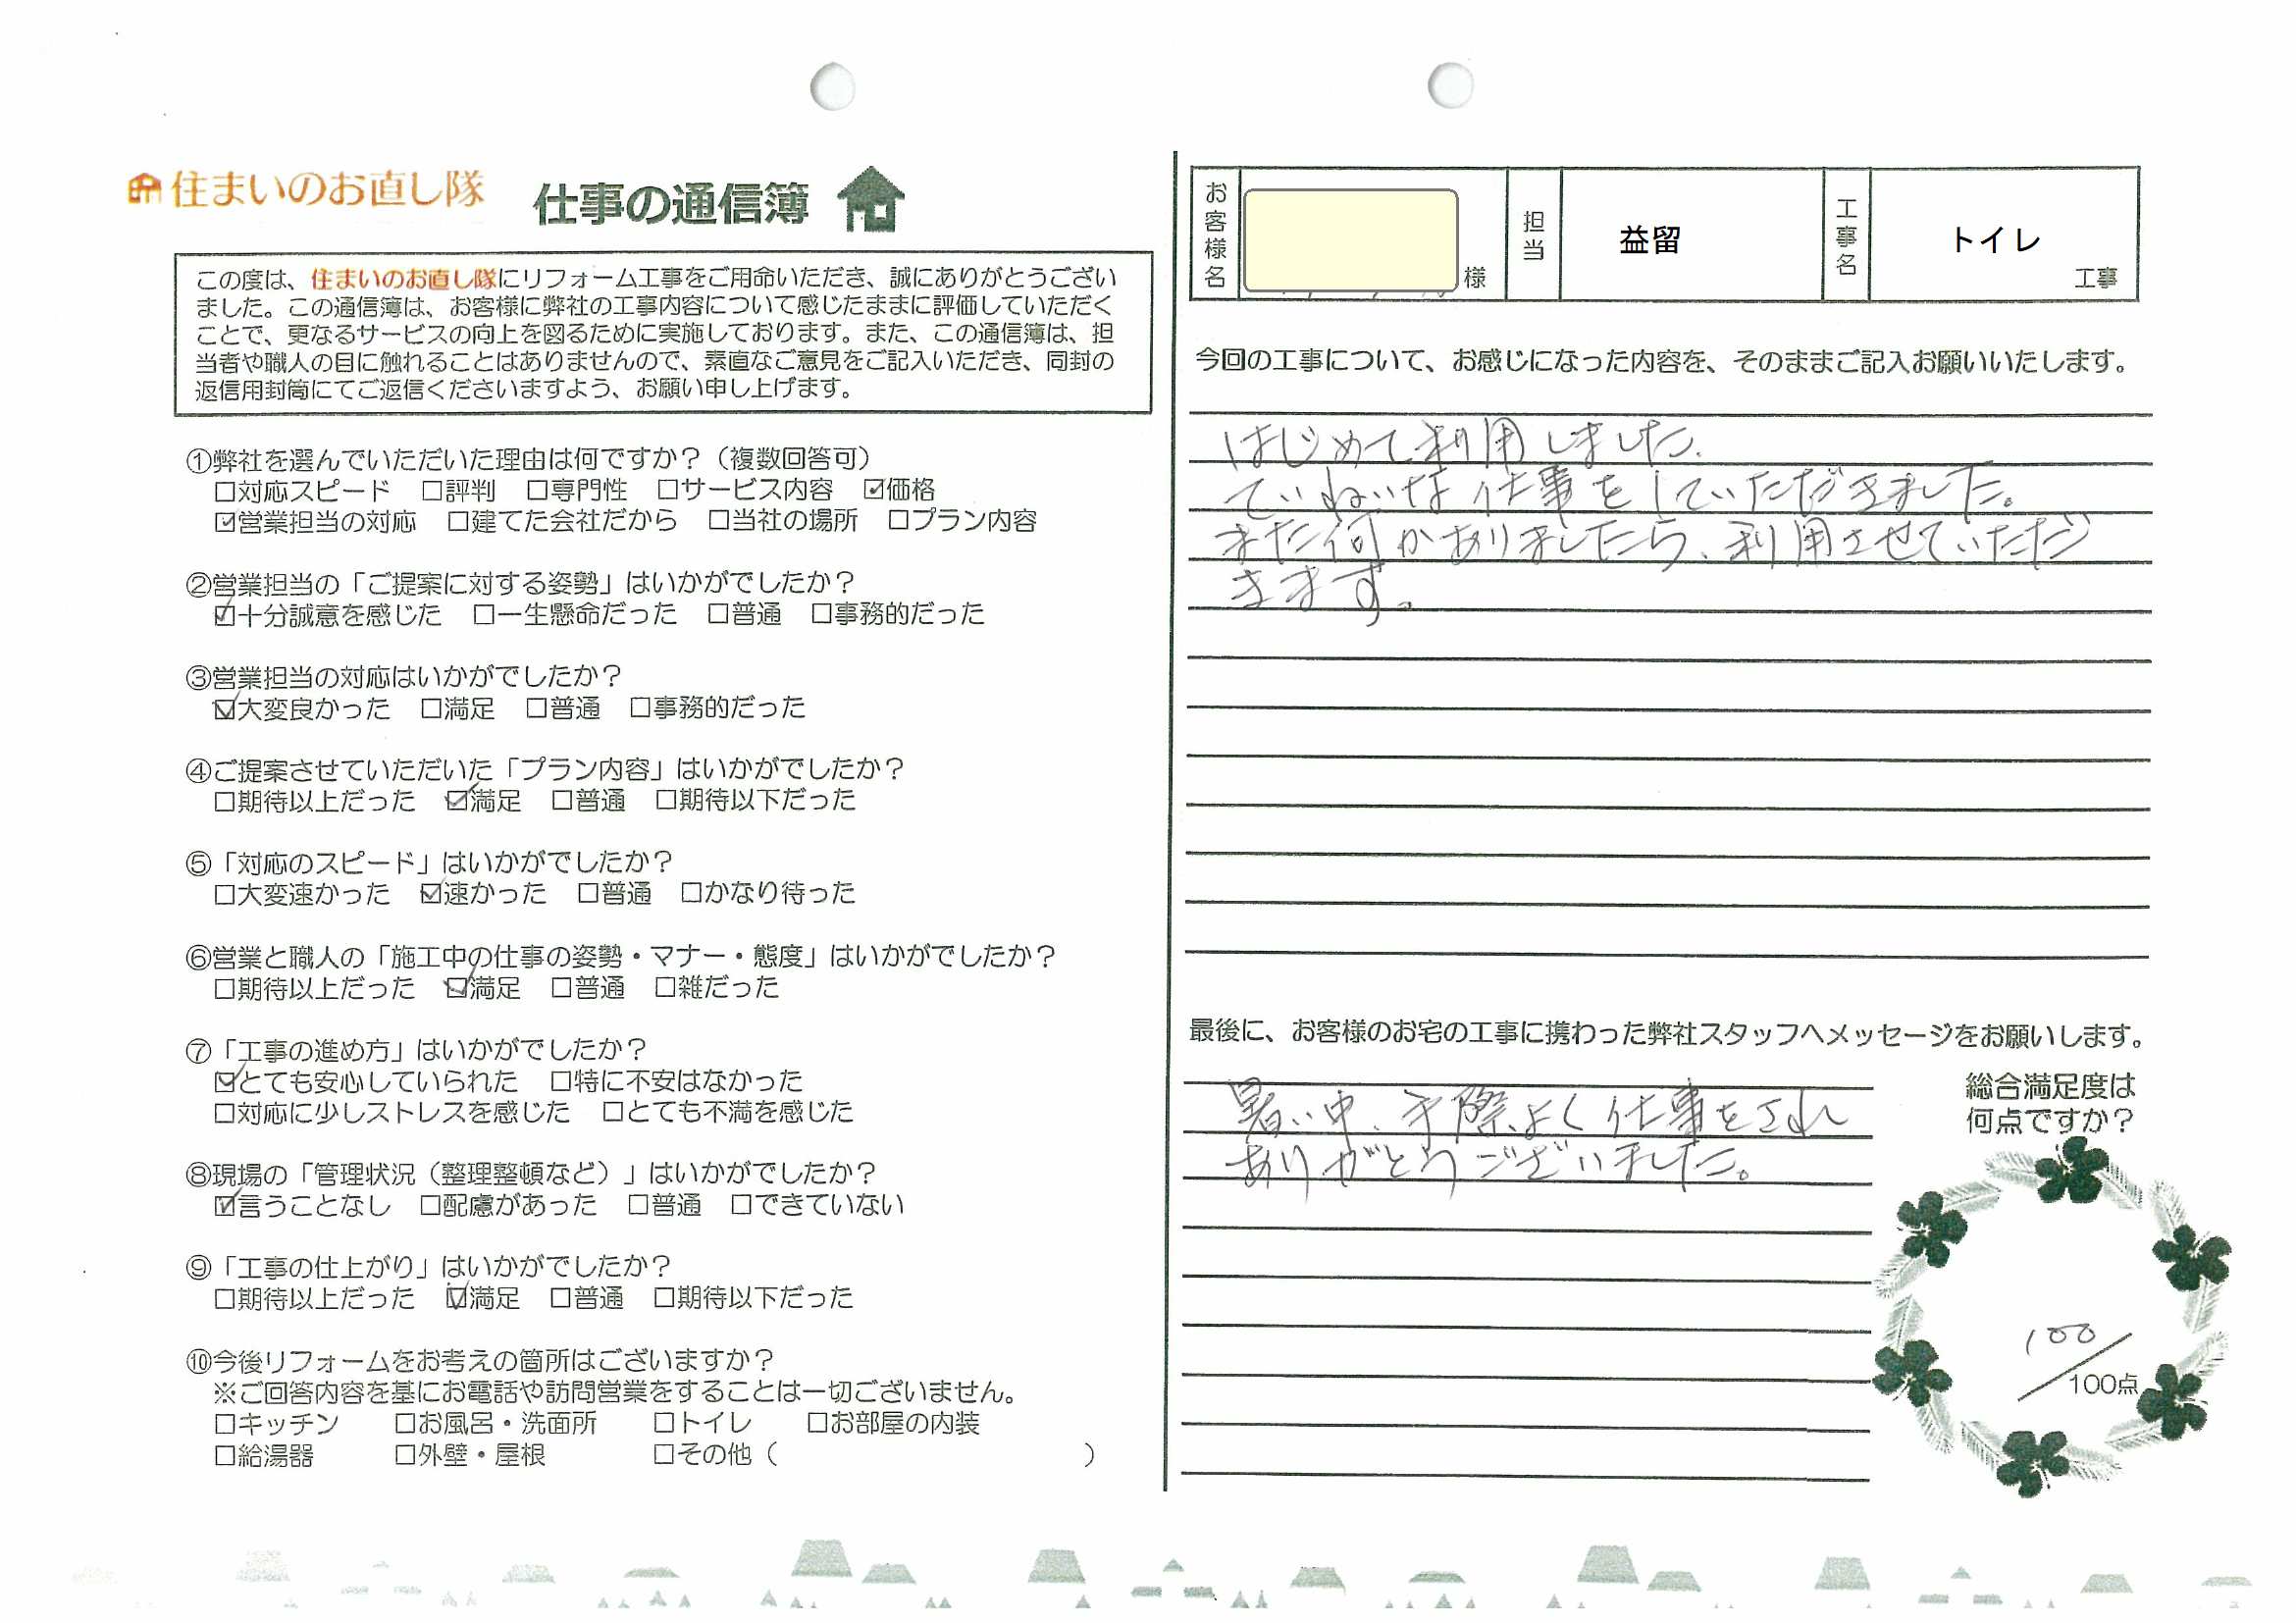 住まいのお直し隊 仕事の通信簿
この度は、住まいのお直し隊にリフォーム工事をご用命いただき、誠にありがとうござい
ました。この通信簿は、お客様に弊社の工事内容について感じたままに評価していただく
ことで、更なるサービスの向上を図るために実施しております。また、この通信簿は、担
当者や職人の目に触れることはありませんので、素直なご意見をご記入いただき、同封の
返信用封筒にてご返信くださいますよう、お願い申し上げます。
①弊社を選んでいただいた理由は何ですか？（複数回答可）
□対応スピード □評判 □専門性 □サービス内容 ☑価格
☑営業担当の対応 □建てた会社だから □当社の場所 □プラン内容
②営業担当の「ご提案に対する姿勢」はいかがでしたか？
☑十分誠意を感じた □一生懸命だった □普通 □事務的だった
③営業担当の対応はいかがでしたか？
☑大変良かった □満足 □普通 □事務的だった
④ご提案させていただいた「プラン内容」はいかがでしたか？
□期待以上だった ☑満足 □普通 □期待以下だった
⑤「対応のスピード」はいかがでしたか？
□大変速かった ☑速かった □普通 □かなり待った
⑥営業と職人の「施工中の仕事の姿勢・マナー・態度」はいかがでしたか？
□期待以上だった ☑満足 □普通 □雑だった
⑦「工事の進め方」はいかがでしたか？
☑とても安心していられた □特に不安はなかった
□対応に少しストレスを感じた □とても不満を感じた
⑧現場の「管理状況（整理整頓など）」はいかがでしたか？
☑言うことなし □配慮があった □普通 □できていない
⑨「工事の仕上がり」はいかがでしたか？
□期待以上だった ☑満足 □普通 □期待以下だった
⑩今後リフォームをお考えの箇所はございますか？
※ご回答内容を基にお電話や訪問営業をすることは一切ございません。
□キッチン □お風呂・洗面所 □トイレ □お部屋の内装
□給湯器 □外壁・屋根 □その他（ ）
お客様名 様 担当 益留 工事名 トイレ 工事
今回の工事について、お感じになった内容を、そのままご記入お願いいたします。
はじめて利用しました。
ていねいな仕事をしていただきました。
また何かありましたら、利用させていただ
きます。
最後に、お客様のお宅の工事に携わった弊社スタッフへメッセージをお願いします。
暑い中、手際よく仕事をされ
ありがとうございました。
総合満足度は
何点ですか？
100
100点